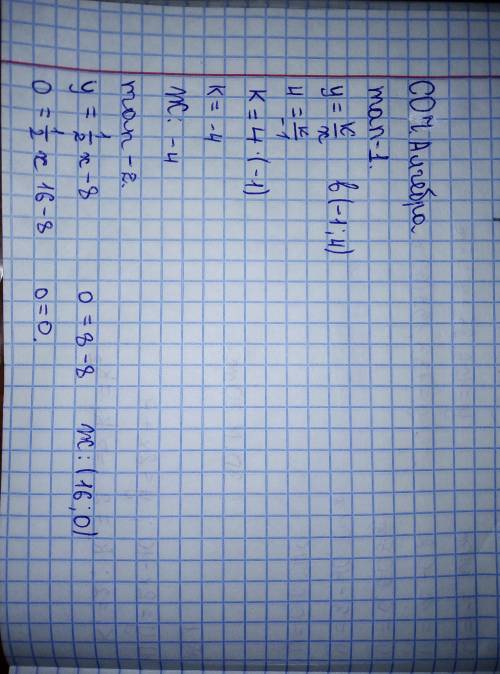 СОЧ. Алгебра
тап-1.
y = k/x   B (-1; 4)
4 = k/-1
k = 4 · (-1)
k = -4
Ж: -4
тап-2.
y = 1/2 x - 8   0 = 8 - 8   Ж: (16; 0)
0 = 1/2 x 16 - 8   0 = 0.